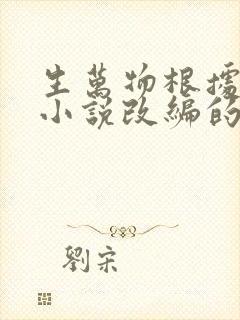 生萬物根據
小說改編的
劉宋